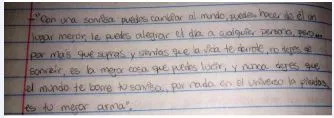 "Con una sonrisa puedes cambiar al mundo, puedes hacer de él un
lugar mejor, le puedes alegrar el día a cualquier persona, pero...
por más que sufras y sientas que la vida te derrote, no dejes de
sonreir, es la mejor cosa que puedes lucir, y nunca dejes que
el mundo te borre tu sonrisa, por nada en el universo la pierdas,
es tu mejor arma".